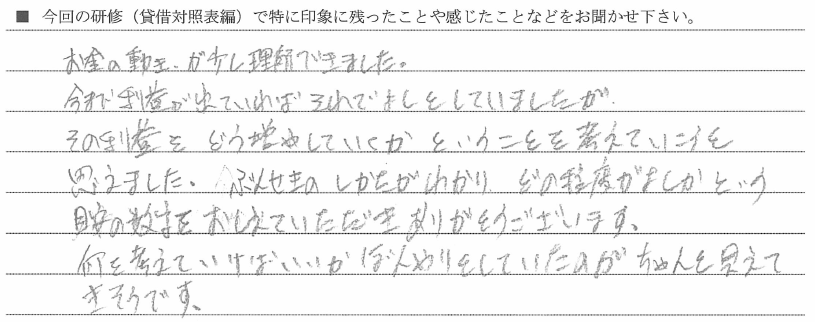 ■ 今回の研修（貸借対照表編）で特に印象に残ったことや感じたことなどをお聞かせ下さい。
お金の動き が少し理解できました。
今まで利益が出ていれば それでよしとしていましたが
その利益を どう増やしていくか ということを考えていこうと
思えました。 ぶんせきの しかたがわかり どの程度がよしか という
目安の数字を おしえていただき ありがとうございます。
何を考えていけばいいか ぼんやりとしていたのが ちゃんと見えて
きそうです。